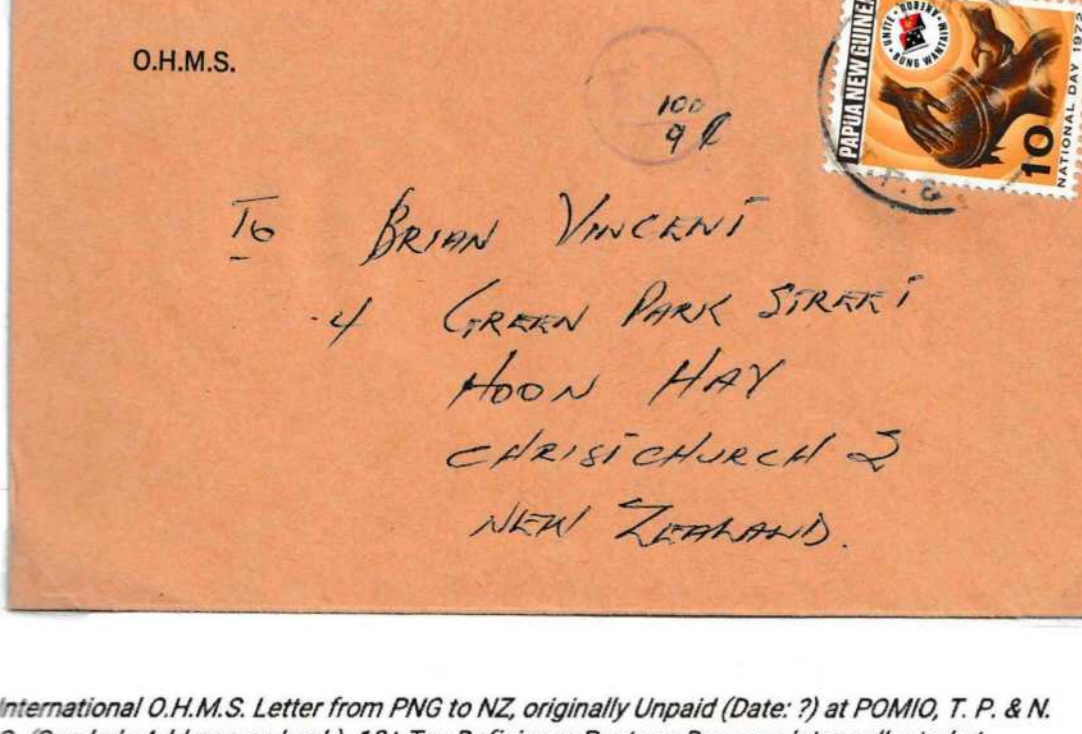 O.H.M.S.
PAPUA NEW GUINEA
BUNG WANTAIM
10
NATIONAL DAY 1972
100
9
To BRIAN VINCENT
4 GREEN PARK STREET
HOON HAY
CHRISTCHURCH 2
NEW ZEALAND.
International O.H.M.S. Letter from PNG to NZ, originally Unpaid (Date: ?) at POMIO, T. P. & N.